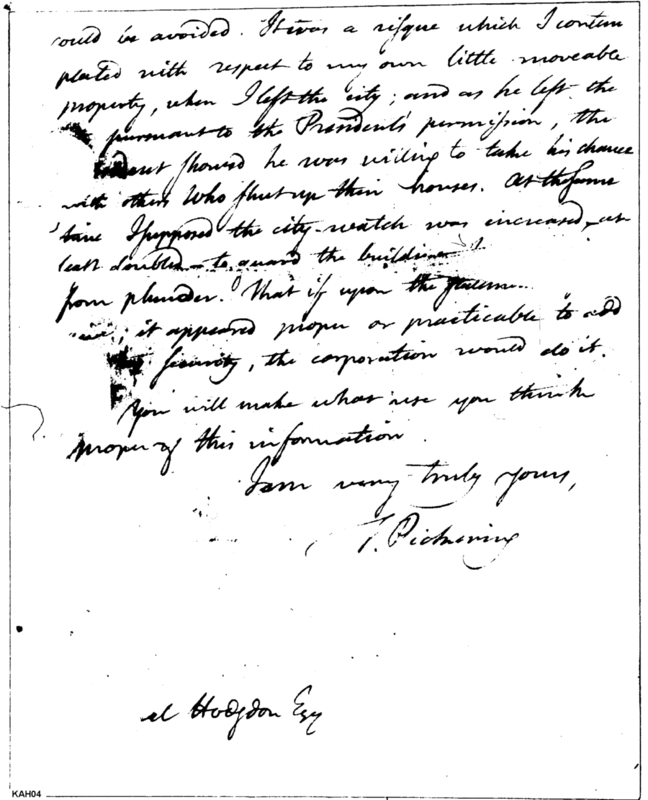 could be avoided. It was a risque which I contem
plated with respect to my own little moveable
property, when I left the city; and as he left the
pursuant to the President's permission, the
showed he was willing to take his chance
with others who shut up their houses. At the same
time I supposed the city-watch was increased, at
least doubled — to guard the buildings
from plunder. That if upon the
it appeared proper or practicable to add
security, the corporation would do it.
You will make what use you think
proper of this information.
I am very truly yours,
T. Pickering
el Hodgdon Esq
KAH04